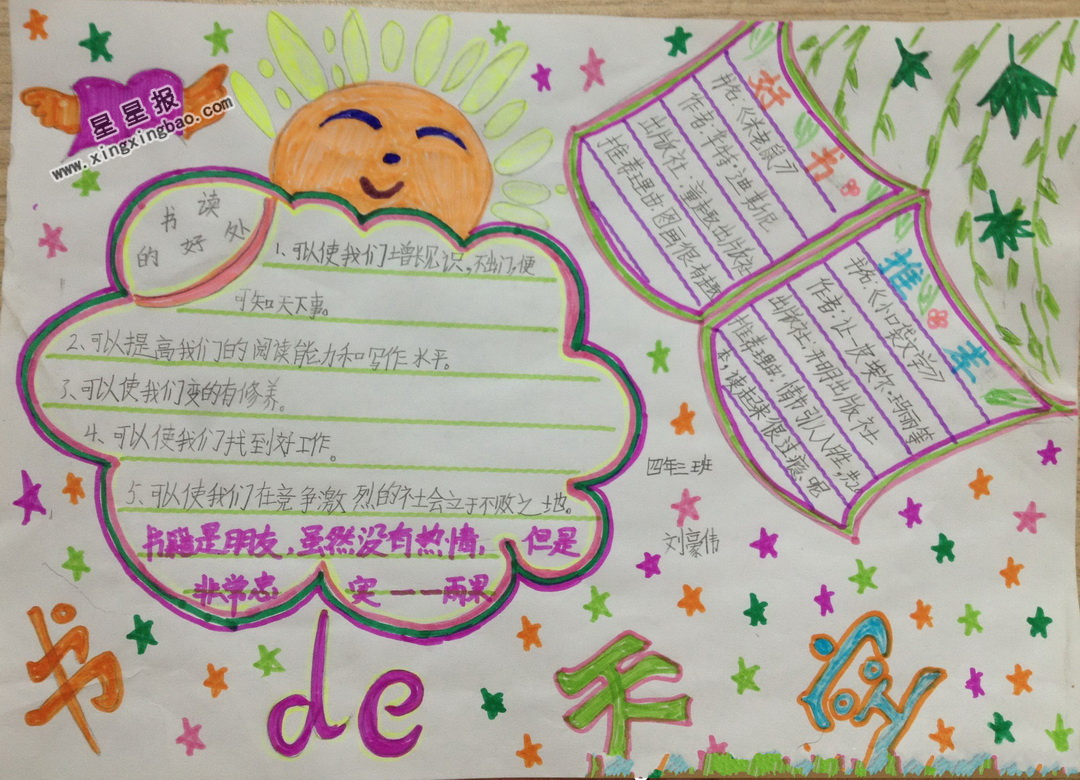 星星报
www.xingxingbao.com
读书的好处
1、可以使我们增长见识,不出门,便
可知天下事。
2、可以提高我们的阅读能力和写作水平。
3、可以使我们变的有修养。
4、可以使我们找到好工作。
5、可以使我们在竞争激烈的社会立于不败之地。
书籍是朋友,虽然没有热情,但是
非常忠实——雨果
好书
推荐
书名:《米老鼠》
作者:华特·迪斯尼
出版社:童趣出版社
推荐理由:图画很有趣
书名:《小口袋文学》
作者:让·皮埃尔·玛丽等
出版社:开明出版社
推荐理由:情节引人入胜,共20
本,读起来很过瘾呢
四年三班
刘豪伟
书de天